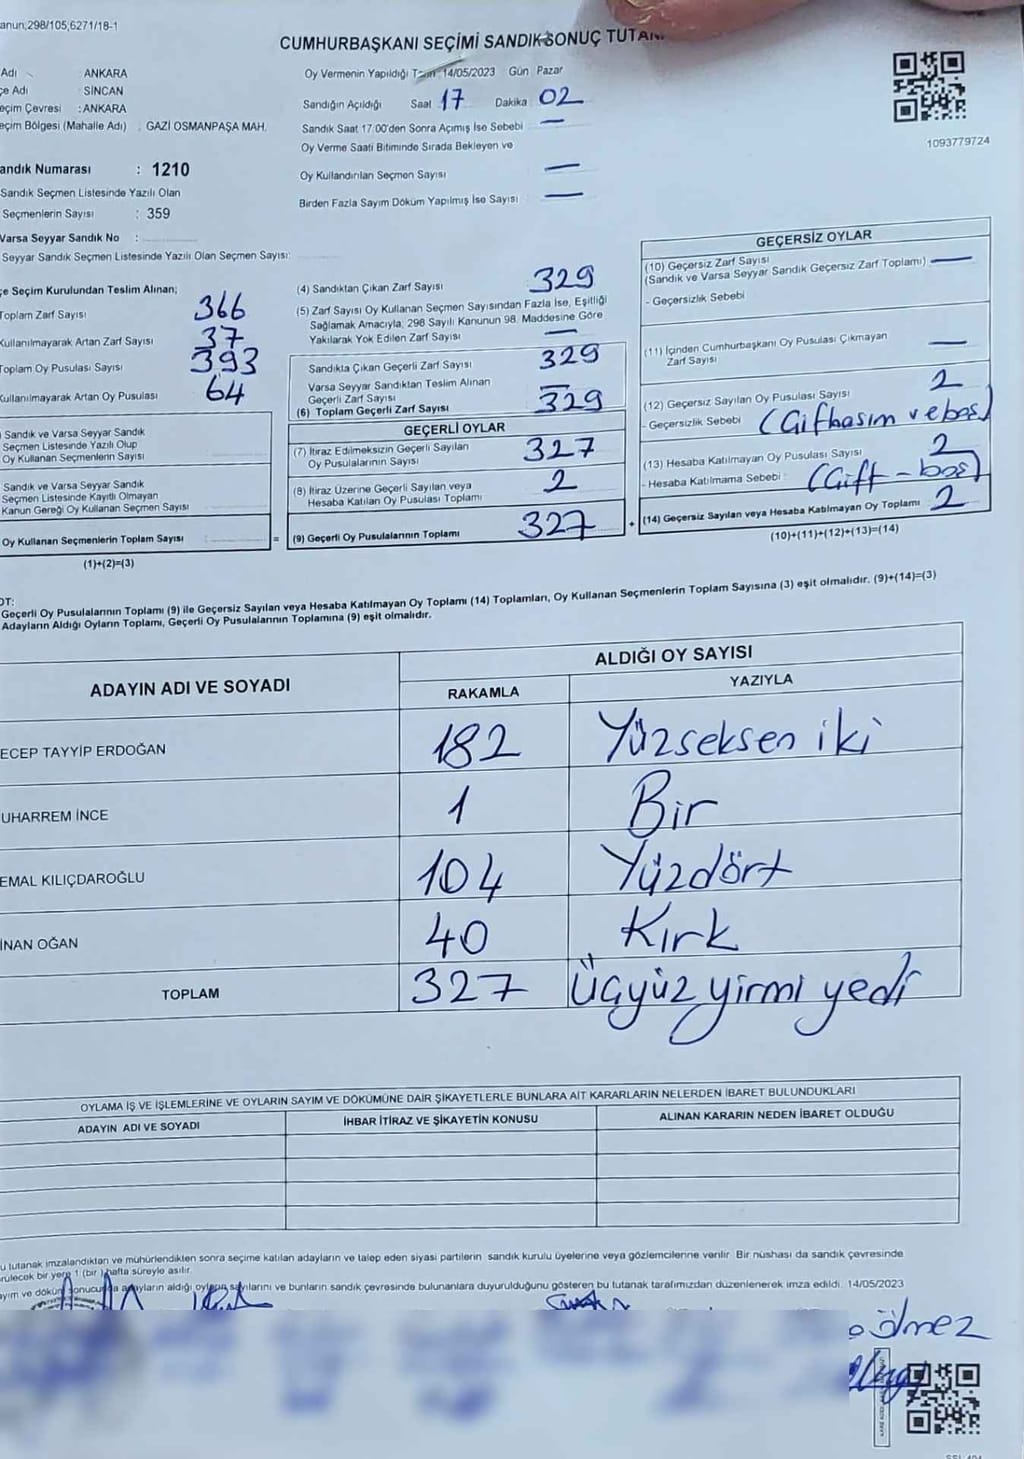 anun;298/105;6271/18-1
CUMHURBAŞKANI SEÇİMİ SANDIK SONUÇ TUTAN
Adı ANKARA
çe Adı : SİNCAN
eçim Çevresi : ANKARA
eçim Bölgesi (Mahalle Adı) : GAZİ OSMANPAŞA MAH.
andık Numarası : 1210
Sandık Seçmen Listesinde Yazılı Olan
Seçmenlerin Sayısı : 359
Varsa Seyyar Sandık No :
Seyyar Sandık Seçmen Listesinde Yazılı Olan Seçmen Sayısı:
Oy Vermenin Yapıldığı 14/05/2023 Gün Pazar
Sandığın Açıldığı Saat 17 Dakika 02
Sandık Saat 17:00'den Sonra Açımış İse Sebebi —
Oy Verme Saati Bitiminde Sırada Bekleyen ve
Oy Kullandırılan Seçmen Sayısı —
Birden Fazla Sayım Döküm Yapılmış İse Sayısı —
1093779724
çe Seçim Kurulundan Teslim Alınan;
Toplam Zarf Sayısı 366
Kullanılmayarak Artan Zarf Sayısı 37
Toplam Oy Pusulası Sayısı 393
Kullanılmayarak Artan Oy Pusulası 64
Sandık ve Varsa Seyyar Sandık
Seçmen Listesinde Yazılı Olup
Oy Kullanan Seçmenlerin Sayısı
Sandık ve Varsa Seyyar Sandık
Seçmen Listesinde Kayıtlı Olmayan
Kanun Gereği Oy Kullanan Seçmen Sayısı
Oy Kullanan Seçmenlerin Toplam Sayısı =
(1)+(2)=(3)
(4) Sandıktan Çıkan Zarf Sayısı 329
(5) Zarf Sayısı Oy Kullanan Seçmen Sayısından Fazla İse, Eşitliği
Sağlamak Amacıyla; 298 Sayılı Kanunun 98. Maddesine Göre
Yakılarak Yok Edilen Zarf Sayısı —
Sandıkta Çıkan Geçerli Zarf Sayısı 329
Varsa Seyyar Sandıktan Teslim Alınan
Geçerli Zarf Sayısı —
(6) Toplam Geçerli Zarf Sayısı 329
GEÇERLİ OYLAR
(7) İtiraz Edilmeksizin Geçerli Sayılan
Oy Pusulalarının Sayısı 327
(8) İtiraz Üzerine Geçerli Sayılan veya
Hesaba Katılan Oy Pusulası Toplamı 2
(9) Geçerli Oy Pusulalarının Toplamı 327 +
GEÇERSİZ OYLAR
(10) Geçersiz Zarf Sayısı
(Sandık ve Varsa Seyyar Sandık Geçersiz Zarf Toplamı) —
- Geçersizlik Sebebi
(11) İçinden Cumhurbaşkanı Oy Pusulası Çıkmayan
Zarf Sayısı —
(12) Geçersiz Sayılan Oy Pusulası Sayısı 2
- Geçersizlik Sebebi (Gifbasım veboş)
(13) Hesaba Katılmayan Oy Pusulası Sayısı 2
- Hesaba Katılmama Sebebi : (Gift - boş)
(14) Geçersiz Sayılan veya Hesaba Katılmayan Oy Toplamı 2
(10)+(11)+(12)+(13)=(14)
OT:
Geçerli Oy Pusulalarının Toplamı (9) ile Geçersiz Sayılan veya Hesaba Katılmayan Oy Toplamı (14) Toplamları, Oy Kullanan Seçmenlerin Toplam Sayısına (3) eşit olmalıdır. (9)+(14)=(3)
Adayların Aldığı Oyların Toplamı, Geçerli Oy Pusulalarının Toplamına (9) eşit olmalıdır.
ADAYIN ADI VE SOYADI ALDIĞI OY SAYISI
RAKAMLA YAZIYLA
ECEP TAYYİP ERDOĞAN 182 Yüzseksen iki
UHARREM İNCE 1 Bir
EMAL KILIÇDAROĞLU 104 Yüzdört
İNAN OĞAN 40 Kırk
TOPLAM 327 Üçyüz yirmi yedi
OYLAMA İŞ VE İŞLEMLERİNE VE OYLARIN SAYIM VE DÖKÜMÜNE DAİR ŞİKAYETLERLE BUNLARA AİT KARARLARIN NELERDEN İBARET BULUNDUKLARI
ADAYIN ADI VE SOYADI İHBAR İTİRAZ VE ŞİKAYETİN KONUSU ALINAN KARARIN NEDEN İBARET OLDUĞU
u tutanak imzalandıktan ve mühürlendikten sonra seçime katılan adayların ve talep eden siyasi partilerin sandık kurulu üyelerine veya gözlemcilerine verilir. Bir nüshası da sandık çevresinde
rülecek bir yere 1 (bir ) hafta süreyle asılır.
ayım ve döküm sonucunda adayların aldığı oyların sayılarını ve bunların sandık çevresinde bulunanlara duyurulduğunu gösteren bu tutanak tarafımızdan düzenlenerek imza edildi. 14/05/2023
ölmez